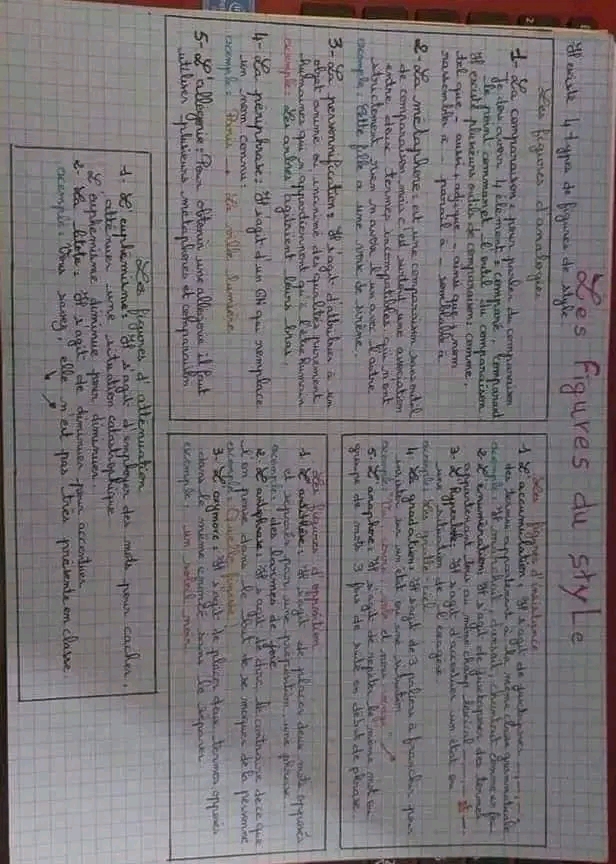 Les figures du style
Il existe 4 types de figures de style
Les figures d'analogie
1- La comparaison : pour parler de comparaison
Je dois avoir 4 élément : comparé, comparant
le point commun et l'outil du comparaison.
Il existe plusieurs outils de comparaison : comme,
tel que, aussi + adj + que - ainsi que
ressemble à - pareil à - semblable à
2- La métaphore : est une comparaison sans outil
de comparaison, mais c'est surtout une association
entre deux termes incompatibles qui n'ont
strictement rien n'avoir l'un avec l'autre
exemple : Cette fille a une voix de sirène.
3- La personnification : Il s'agit d'attribuer à un
objet animé ou inanimé des qualités purement
humaines qui n'appartiennent qu'à l'être humain
exemple : Les arbres agitaient leurs bras.
4- La périphrase : Il s'agit d'un GN qui remplace
un nom connu :
exemple : Paris → La ville lumière
5- L'allégorie : Pour obtenir une allégorie il faut
utiliser plusieurs métaphores et comparaison
Les figures d'insistance
1 L'accumulation : Il s'agit de juxtaposer
des termes appartenant à la même classe grammaticale
exemple : Il marchait, dansait, chantait comme un fou
2 L'énumération : Il s'agit de juxtaposer des termes
appartenant tous au même champ lexical
3- Hyperbole : Il s'agit d'accentuer un état ou
une situation de l'exagéré
exemple : Les gratte-ciel
4. La gradation : Il s'agit de 3 paliers à franchir pour
insister sur un état ou une situation
5. L'anaphore : Il s'agit de répéter le même mot ou
groupe de mots 3 fois de suite en début de phrase
Les figures d'opposition
1 L'antithèse : Il s'agit de placer deux mots opposés
et séparés par une préposition, une phrase
exemple : des larmes de joie
2. L'antiphrase : Il s'agit de dire le contraire de ce que
l'on pense dans le but de se moquer de la personne
exemple : Quelle figure !
3- L'oxymore : Il s'agit de placer deux termes opposés
dans le même énoncé sans les séparer
exemple : un soleil noir
Les figures d'atténuation
1- L'euphémisme : Il s'agit d'employer des mots pour cacher,
atténuer une situation catastrophique
L'euphémisme diminue pour diminuer
2- La litote : Il s'agit de diminuer pour accentuer
exemple : Vous savez, elle n'est pas très présente en classe